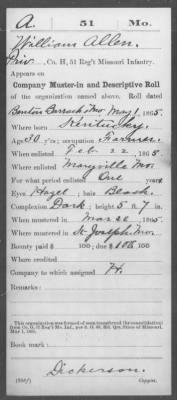 A. 51 Mo.
William Allen.
Priv., Co. H, 51 Reg't Missouri Infantry.
Appears on
Company Muster-in and Descriptive Roll
of the organization named above. Roll dated
Benton Barracks Mo, May 1, 1865.
Where born
Age 30 y'rs; occupation Farmer.
When enlisted Feb. 22, 1865.
Where enlisted Maryville Mo.
For what period enlisted One years
Eyes Hazel; hair Black.
Complexion Dark; height 5 ft. 7 in.
When mustered in Mar 20, 1865.
Where mustered in St. Joseph Mo.
Bounty paid $ 100; due $ 100
Where credited
Company to which assigned H.
Remarks:
This organization was formed of men transferred (by consolidation)
Book mark:
Dickerson.
Copyist.